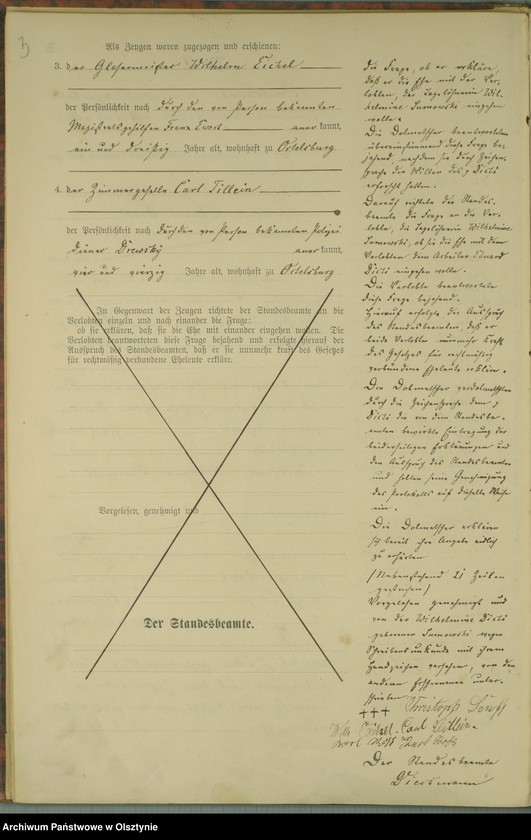 3
Als Zeugen waren zugezogen und erschienen:
3. der Glasermeister Wilhelm Eichel
der Persönlichkeit nach durch den von Person bekannten
Magistratsgehilfen Franz Ewert anerkannt,
ein und dreißig Jahre alt, wohnhaft zu Ortelsburg
4. der Zimmergeselle Carl Tillein
der Persönlichkeit nach durch den von Person bekannten Polizei
diener Drewsky anerkannt,
vier und vierzig Jahre alt, wohnhaft zu Ortelsburg
In Gegenwart der Zeugen richtete der Standesbeamte an die
Verlobten einzeln und nach einander die Frage:
ob sie erklären, daß sie die Ehe mit einander eingehen wollen. Die
Verlobten beantworteten diese Frage bejahend und erfolgte hierauf der
Ausspruch des Standesbeamten, daß er sie nunmehr kraft des Gesetzes
für rechtmäßig verbundene Eheleute erkläre.
Vorgelesen, genehmigt und
Der Standesbeamte.
die Frage, ob er erkläre,
daß er die Ehe mit der Ver-
lobten, der Tagelöhnerin Wil-
helmine eingehen
wolle.
Die Dolmetscher beantworteten
übereinstimmend diese Frage be-
jahend, nachdem sie durch Zeichen-
sprache den Willen des
erforscht hatten.
Darauf richtete der Standes-
beamte die Frage an die Ver-
lobte, die Tagelöhnerin Wilhelmine
ob sie die Ehe mit dem
Verlobten dem Arbeiter
eingehen wolle.
Die Verlobte beantwortete
diese Frage bejahend.
Hierauf erfolgte der Ausspruch
des Standesbeamten, daß er
beide Verlobten nunmehr kraft
des Gesetzes für rechtmäßig
verbundene Eheleute erkläre.
Die Dolmetscher verdolmetschten
durch die Zeichensprache dem
die von dem Standesbe-
amten bewirkte Eintragung der
beiderseitigen Erklärungen und
den Ausspruch des Standesbeamten
und holten seine Genehmigung
des Protokolls auf dieselbe Weise
ein.
Die Dolmetscher erklären
sich bereit ihre Angabe eidlich
zu erhärten
(Nebenstehend 21 Zeilen
gestrichen)
Vorgelesen genehmigt und
von der Wilhelmine
geborenen wegen
Schreibensunkunde mit ihrem
Handzeichen versehen, von den
anderen Erschienenen unter-
schrieben
+++ Christoph
Wilh. Eichel. Carl Tillein
Der Standesbeamte
Archiwum Państwowe w Olsztynie